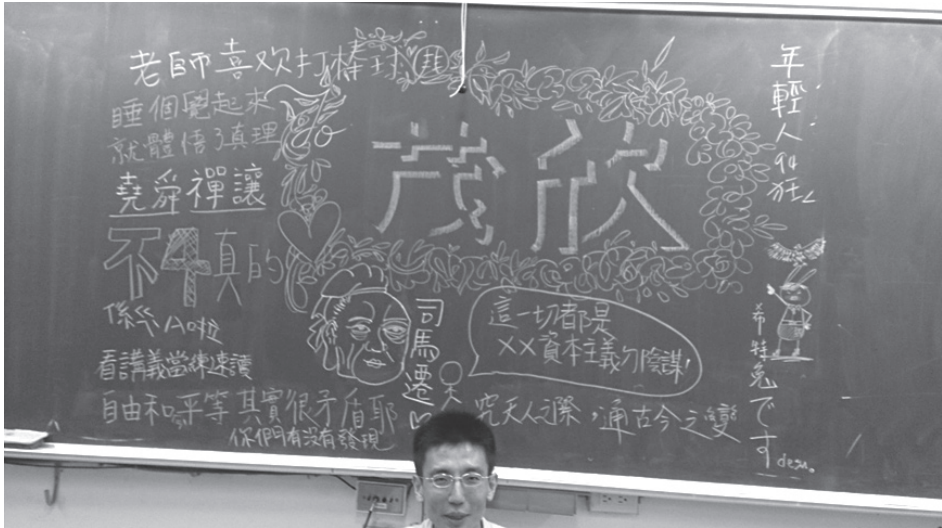 老師喜欢打棒球
睡個覺起來
就體悟了真理
Go
堯舜禪讓
不4真的
係金A啦
看講義當練速讀
自由和平等其實很矛盾耶
你們有沒有發現
茂欣
司馬遷
這一切都是
××資本主義ㄉ陰謀!
究天人之際，通古今之變
年輕人94狂
希特兔です
desu。